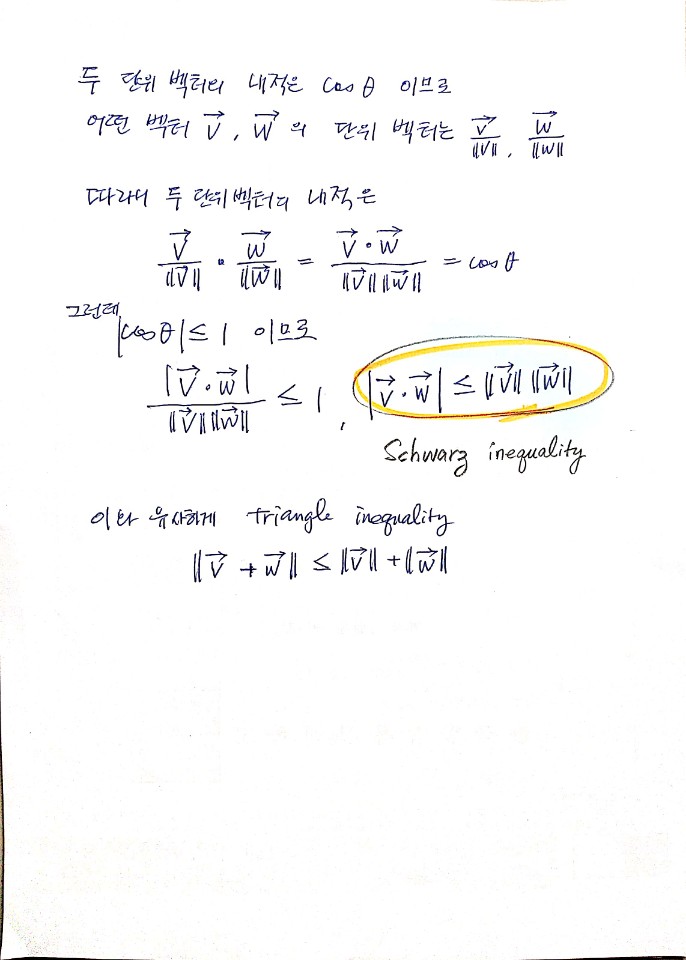 두 단위 벡터의 내적은 cos θ 이므로
어떤 벡터 v⃗, w⃗ 의 단위 벡터는 v⃗/‖v‖, w⃗/‖w‖
따라서 두 단위벡터의 내적은
v⃗/‖v⃗‖ · w⃗/‖w⃗‖ = v⃗·w⃗/‖v⃗‖‖w⃗‖ = cos θ
그런데
|cos θ| ≤ 1 이므로
|v⃗·w⃗|/‖v⃗‖‖w⃗‖ ≤ 1, |v⃗·w⃗| ≤ ‖v⃗‖ ‖w⃗‖
Schwarz inequality
이와 유사하게 triangle inequality
‖v⃗ + w⃗‖ ≤ ‖v⃗‖ + ‖w⃗‖